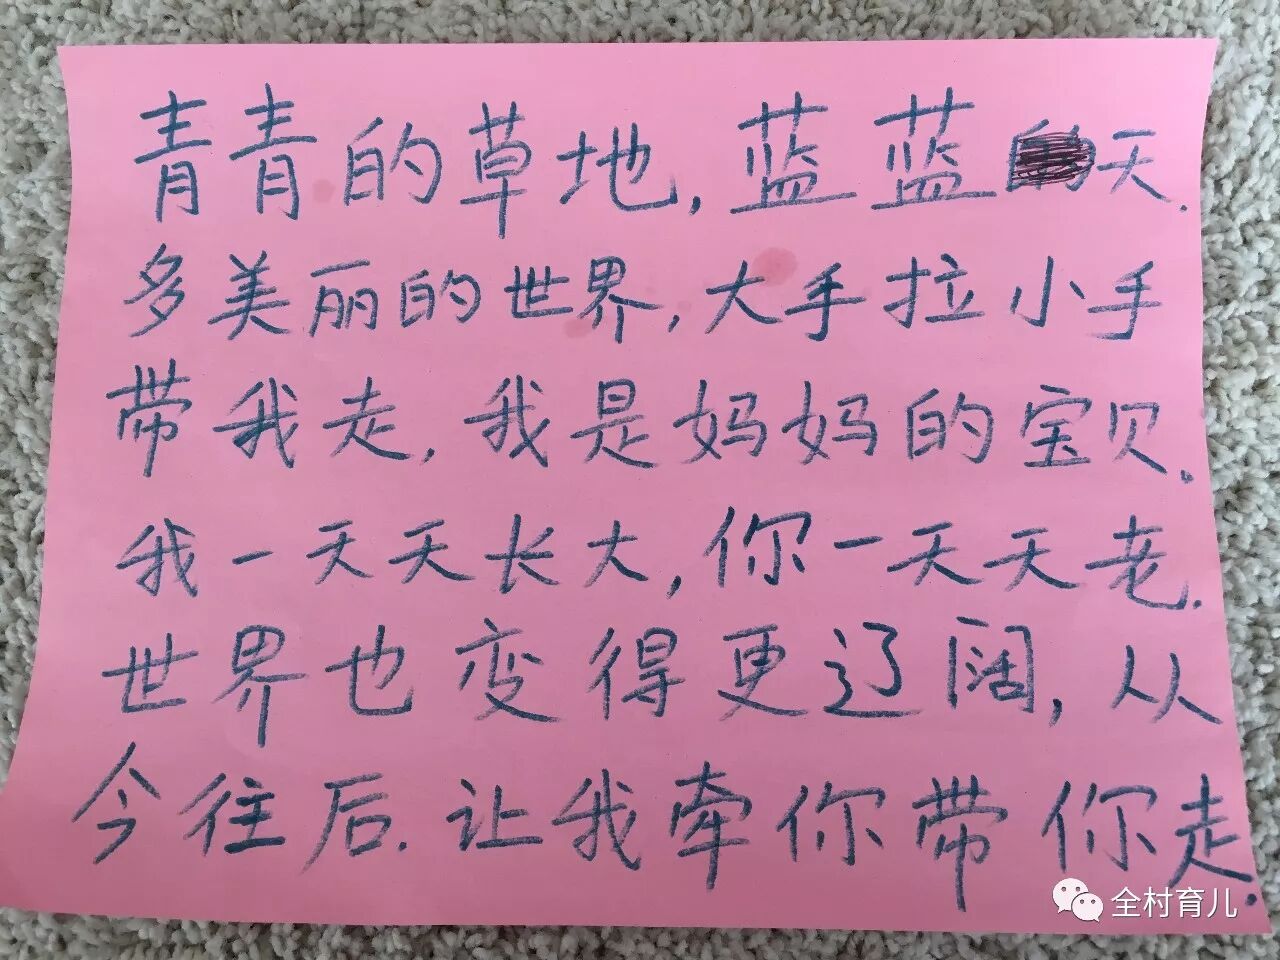 青青的草地,蓝蓝天.
多美丽的世界,大手拉小手
带我走,我是妈妈的宝贝.
我一天天长大,你一天天老.
世界也变得更辽阔,从
今往后.让我牵你带你走.
全村育儿